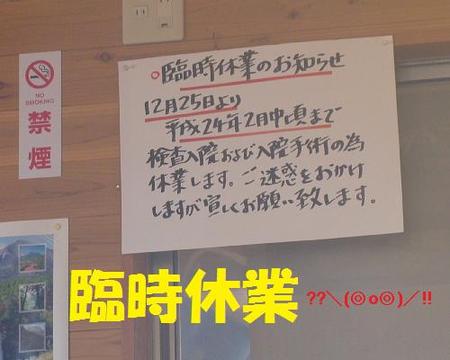 ○臨時休業のお知らせ
12月25日より
平成24年2月中頃まで
検査入院および入院手術の為
休業します。ご迷惑をおかけ
しますが宜しくお願い致します。
NO SMOKING
禁煙
臨時休業 ??＼(◎o◎)／!!